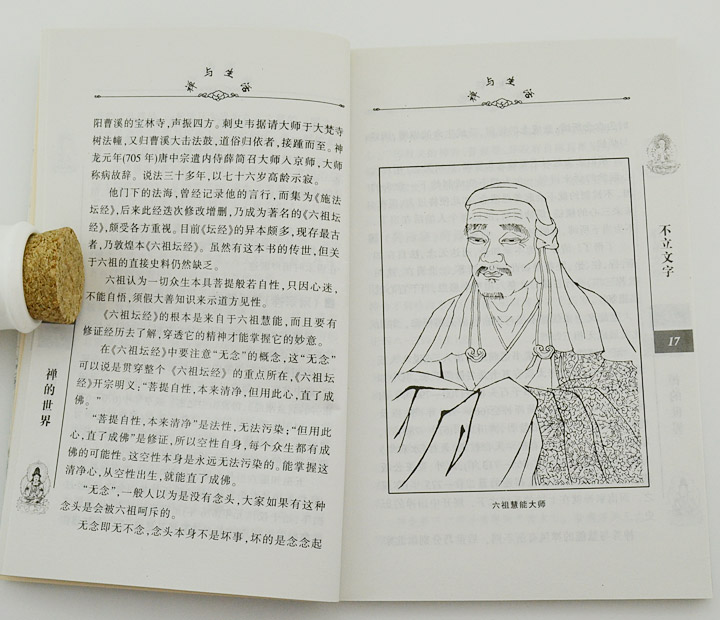 禅与艺术
阳曹溪的宝林寺，声振四方。刺史韦据请大师于大梵寺
树法幢，又归曹溪大击法鼓，道俗归依者，接踵而至。神
龙元年(705 年)唐中宗遣内侍薛简召大师入京师，大师
称病故辞。说法三十多年，以七十六岁高龄示寂。
他门下的法海，曾经记录他的言行，而集为《施法
坛经》，后来此经迭次修改增删，乃成为著名的《六祖坛
经》，颇受各方重视。目前《坛经》的异本颇多，现存最古
者，乃敦煌本《六祖坛经》。虽然有这本书的传世，但关
于六祖的直接史料仍然缺乏。
六祖认为一切众生本具菩提般若自性，只因心迷，
不能自悟，须假大善知识来示道方见性。
《六祖坛经》的根本是来自于六祖慧能，而且要有
修证经历去了解，穿透它的精神才能掌握它的妙意。
在《六祖坛经》中要注意“无念”的概念，这“无念”
可以说是贯穿整个《六祖坛经》的重点所在，《六祖坛
经》开宗明义：“菩提自性，本来清净，但用此心，直了成
佛。”
“菩提自性，本来清净”是法性，无法污染；“但用此
心，直了成佛”是修证，所以空性自身，每个众生都有成
佛的可能性。这空性本身是永远无法污染的。能掌握这
清净心，从空性出生，就能直了成佛。
“无念”，一般人以为是没有念头，大家如果有这种
念头是会被六祖呵斥的。
无念即无不念，念头本身不是坏事，坏的是念念起
禅的世界
不立文字
17
六祖慧能大师